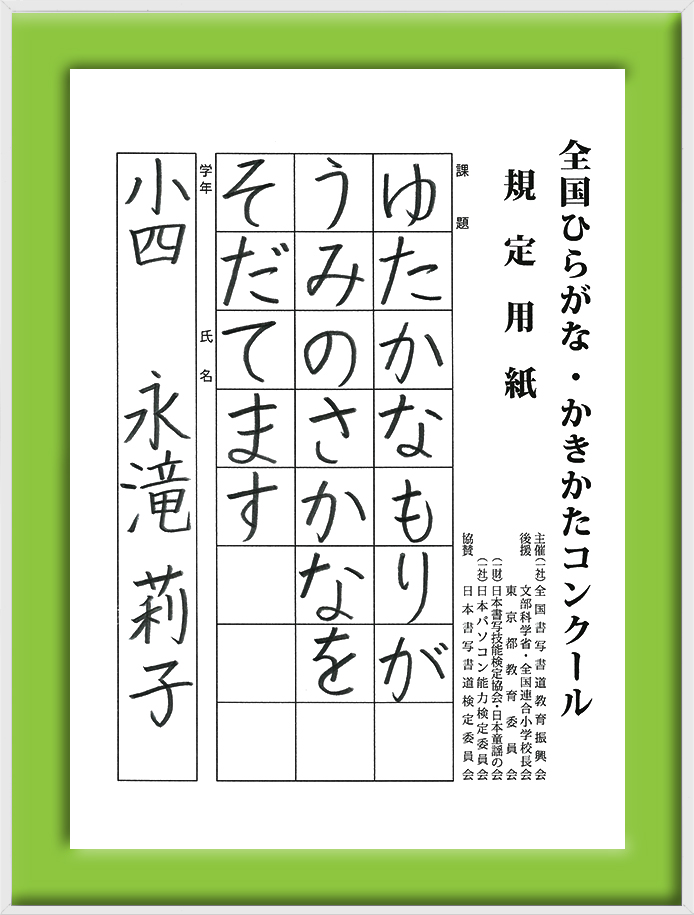 全国ひらがな・かきかたコンクール
規定用紙
主催 (一社)全国書写書道教育振興会
後援 文部科学省・全国連合小学校長会
東京都教育委員会
(一財)日本書写技能検定協会・日本童謡の会
(一社)日本パソコン能力検定委員会
協賛 日本書写書道検定委員会
課題
ゆたかなもりが
うみのさかなを
そだてます
学年 氏名
小四 永滝莉子